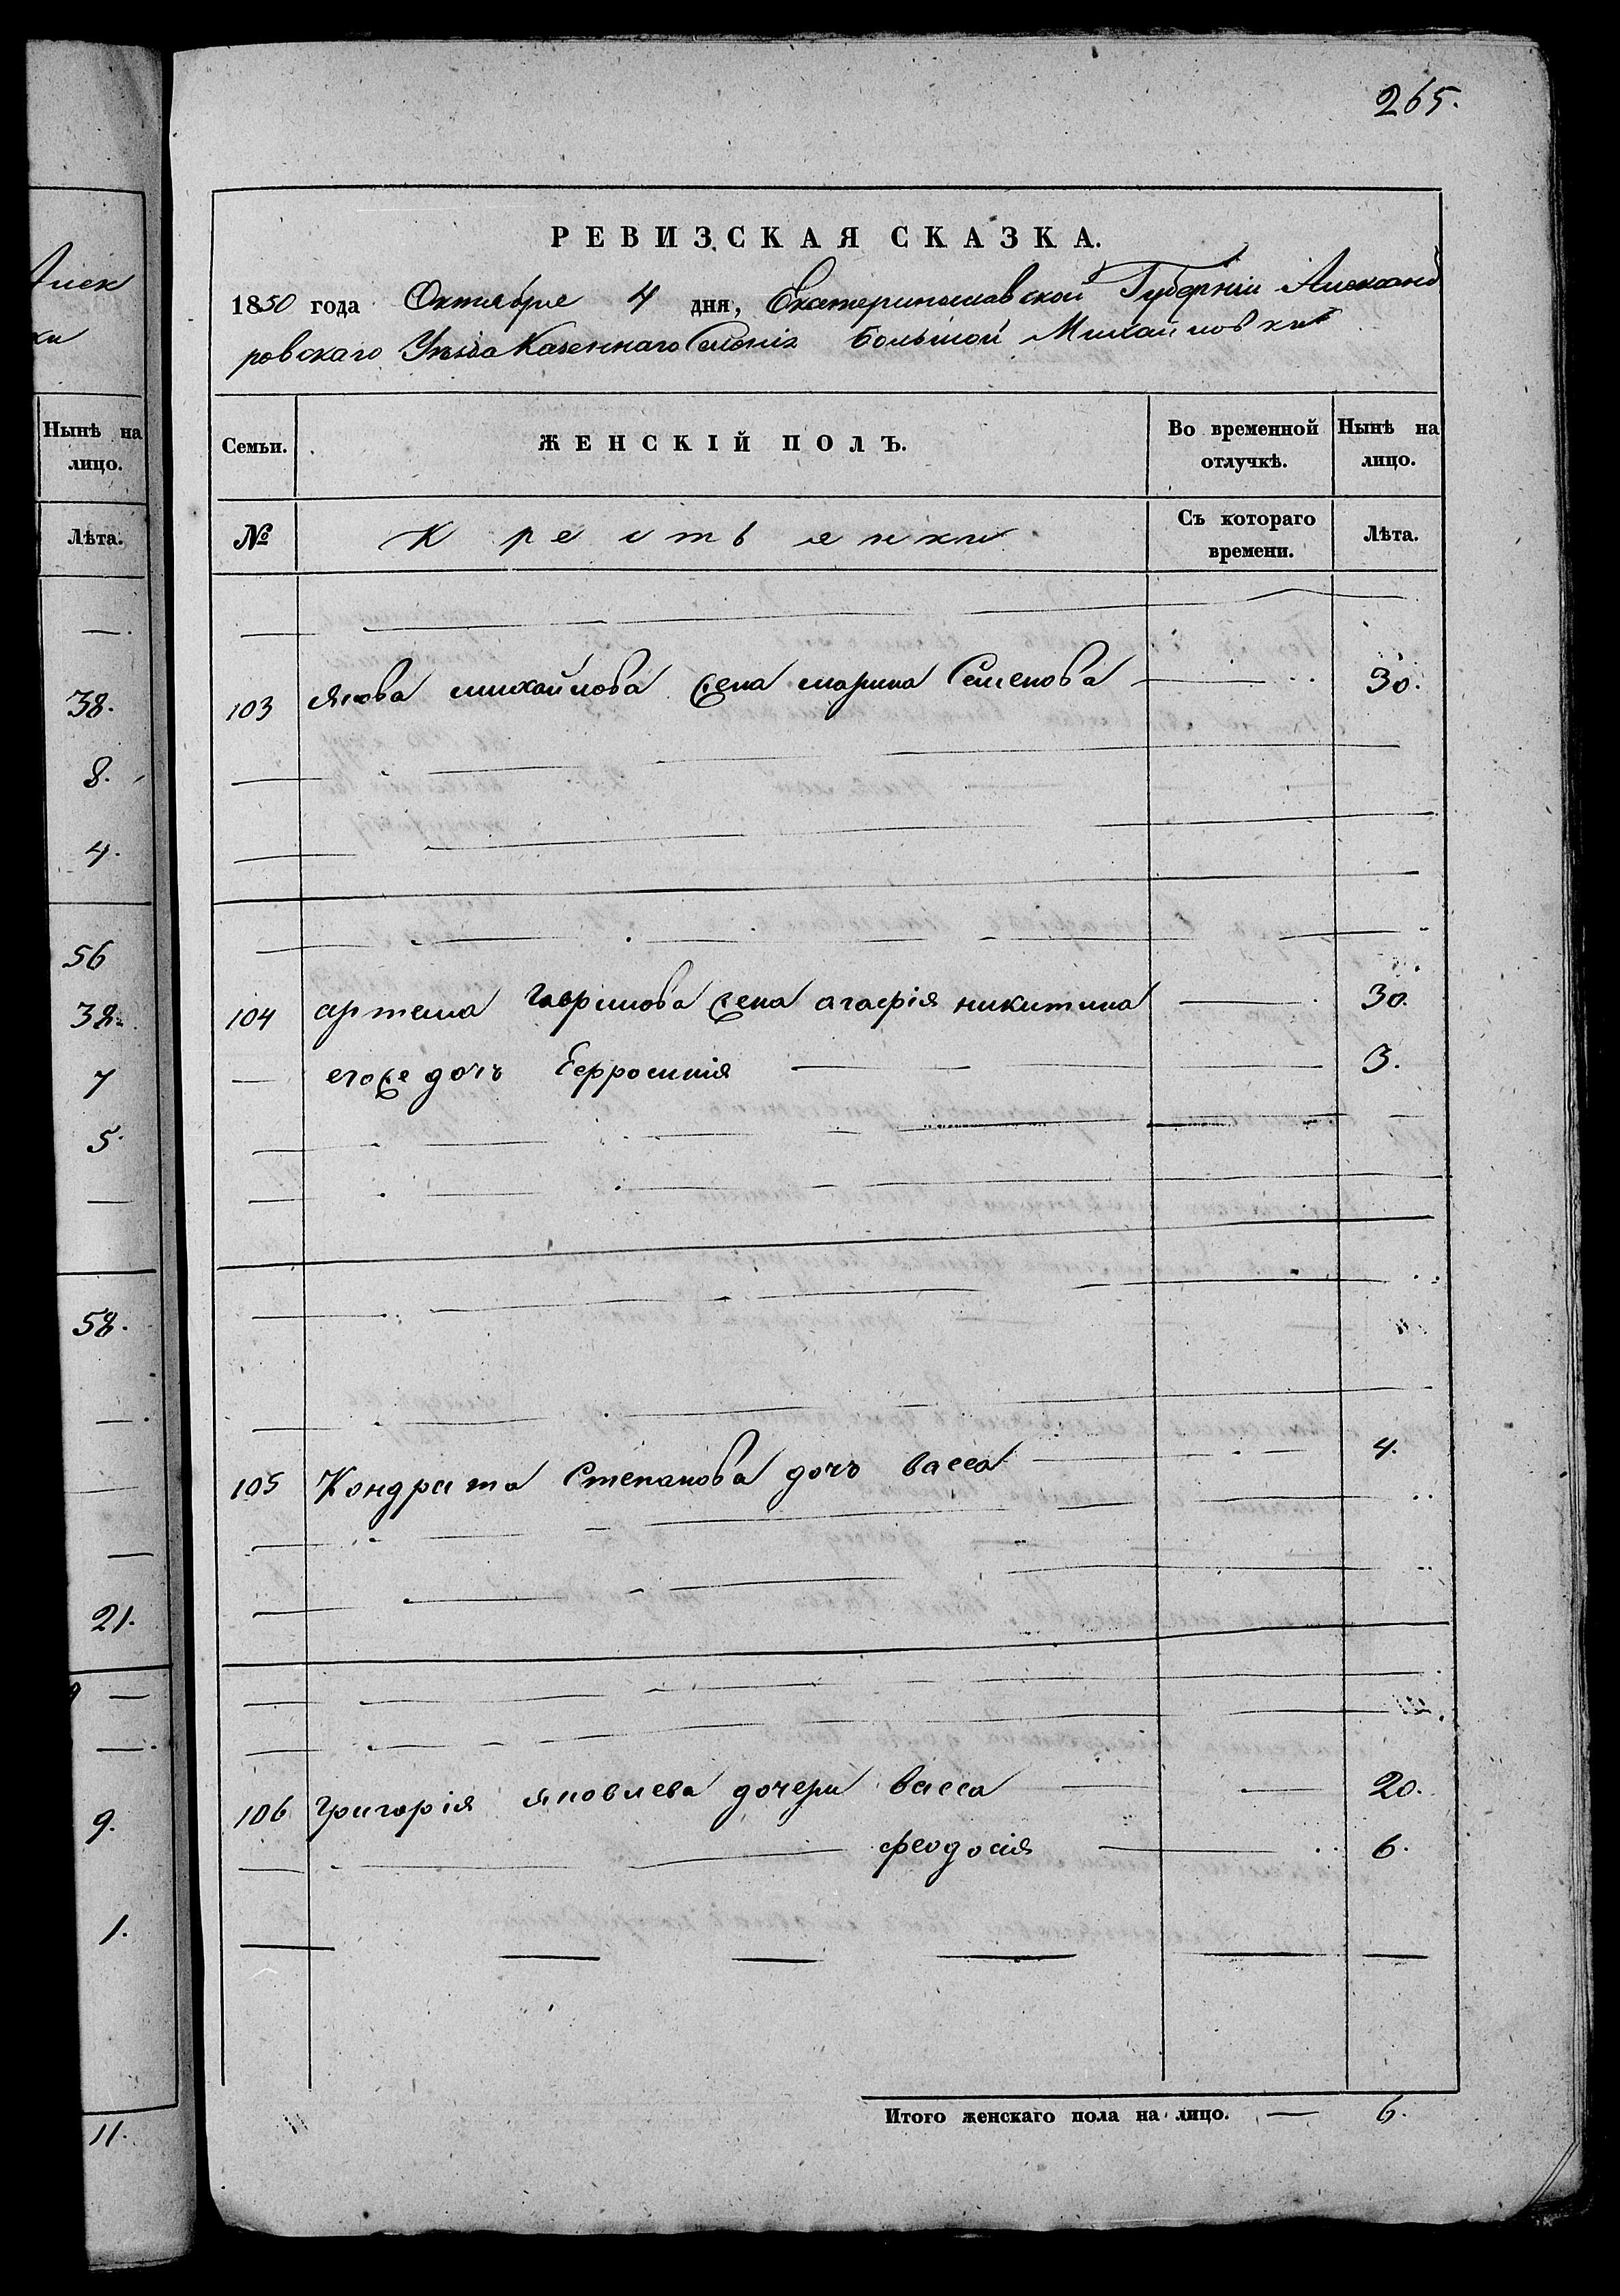 265.
РЕВИЗСКАЯ СКАЗКА.
1850 года Октября 4 дня, Екатеринославской Губерніи Александ
ровскаго Уезда Казеннаго Селенія Большой Михайловки
Семьи.
ЖЕНСКІЙ ПОЛЪ.
Во временной отлучкѣ.
Нынѣ на лицо.
№
Крестьянки
Съ котораго времени.
Лѣта.
103 Якова михайлова жена марина Семенова 30.
104 артема Гаврилова жена агафія никитина 30.
егоже дочь Ефросинія 3.
105 Кондрата Степанова дочь васса 4.
106 Григорія яковлева дочери васса 20.
феодосія 6.
Итого женскаго пола на лицо. 6.
Нынѣ на
лицо.
Лѣта.
38.
8.
4.
56
38.
7
5.
58.
21.
9.
1.
11.